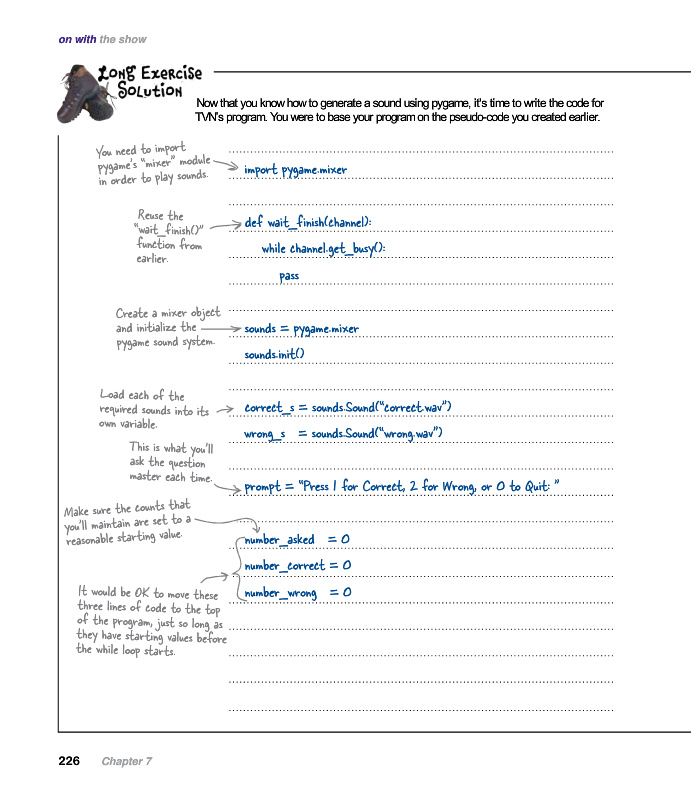 on with the show
Long Exercise
Solution
Now that you know how to generate a sound using pygame, it's time to write the code for
TVN's program. You were to base your program on the pseudo-code you created earlier.
You need to import
pygame's "mixer" module
in order to play sounds.
import pygame.mixer
Reuse the
"wait_finish()"
function from
earlier.
def wait_finish(channel):
while channel.get_busy():
pass
Create a mixer object
and initialize the
pygame sound system.
sounds = pygame.mixer
sounds.init()
Load each of the
required sounds into its
own variable.
correct_s = sounds.Sound("correct.wav")
wrong_s = sounds.Sound("wrong.wav")
This is what you'll
ask the question
master each time.
prompt = "Press 1 for Correct, 2 for Wrong, or 0 to Quit: "
Make sure the counts that
you'll maintain are set to a
reasonable starting value.
number_asked = 0
number_correct = 0
number_wrong = 0
It would be OK to move these
three lines of code to the top
of the program, just so long as
they have starting values before
the while loop starts.
226 Chapter 7